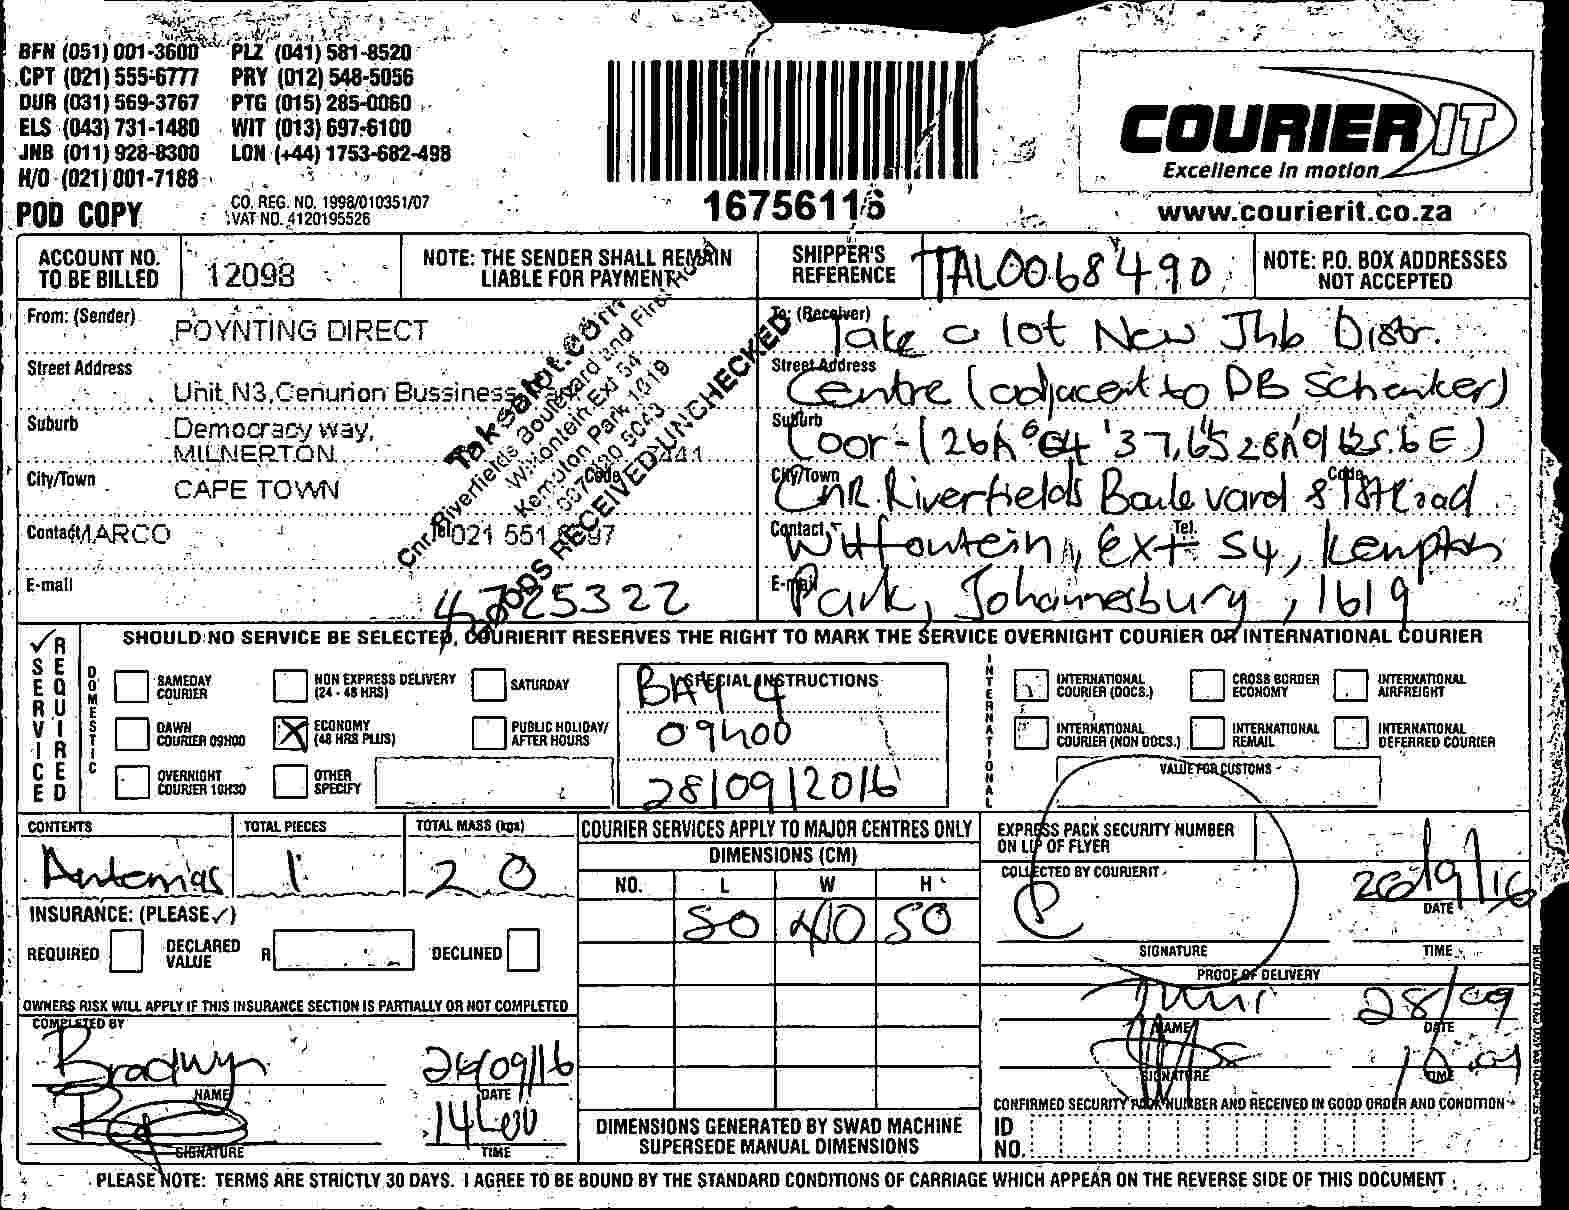 BFN (051) 001-3600 PLZ (041) 581-8520
CPT (021) 555-6777 PRY (012) 548-5056
DUR (031) 569-3767 PTG (015) 285-0060
ELS (043) 731-1480 WIT (013) 697-6100
JNB (011) 928-8300 LON (+44) 1753-682-498
H/O (021) 001-7188
POD COPY
CO. REG. NO. 1998/010351/07
VAT NO. 4120195526
16756116
COURIER IT
Excellence in motion
www.courierit.co.za
ACCOUNT NO. TO BE BILLED 12098
NOTE: THE SENDER SHALL REMAIN LIABLE FOR PAYMENT
SHIPPER'S REFERENCE TAL0068490
NOTE: P.O. BOX ADDRESSES NOT ACCEPTED
From: (Sender) POYNTING DIRECT
Street Address
Unit N3, Cenurion Bussiness
Suburb Democracy way,
MILNERTON
City/Town CAPE TOWN
Code 7441
Contact MARCO
Tel 021 551
E-mail
4725322
Takealot.com
Cnr. Riverfields Boulevard and First Road
Witfontein Ext 54
Kempton Park 1619
GOODS RECEIVED UNCHECKED
To: (Receiver) Take a lot New Jhb Distr.
Street Address Centre (adjacent to DB Schenker)
Suburb Coor-
City/Town Cnr. Riverfields Boulevard & 1st Road
Code
Contact Witfontein, ext 54, Kempton
Tel.
E-mail Park, Johannesburg, 1619
SHOULD NO SERVICE BE SELECTED, COURIERIT RESERVES THE RIGHT TO MARK THE SERVICE OVERNIGHT COURIER OR INTERNATIONAL COURIER
SERVICE REQUIRED
DOMESTIC
SAMEDAY COURIER
NON EXPRESS DELIVERY (24 - 48 HRS)
SATURDAY
DAWN COURIER 09H00
ECONOMY (48 HRS PLUS)
PUBLIC HOLIDAY/ AFTER HOURS
OVERNIGHT COURIER 10H30
OTHER SPECIFY
SPECIAL INSTRUCTIONS
BAY 4
09h00
28/09/2016
INTERNATIONAL
INTERNATIONAL COURIER (DOCS.)
CROSS BORDER ECONOMY
INTERNATIONAL AIRFREIGHT
INTERNATIONAL COURIER (NON DOCS.)
INTERNATIONAL REMAIL
INTERNATIONAL DEFERRED COURIER
VALUE FOR CUSTOMS
CONTENTS TOTAL PIECES TOTAL MASS (kgs)
Antennas 1 20
INSURANCE: (PLEASE ✓)
REQUIRED DECLARED VALUE R DECLINED
OWNERS RISK WILL APPLY IF THIS INSURANCE SECTION IS PARTIALLY OR NOT COMPLETED
COMPLETED BY
Bradwyn 26/09/16
NAME DATE
SIGNATURE TIME
COURIER SERVICES APPLY TO MAJOR CENTRES ONLY
DIMENSIONS (CM)
NO. L W H
50 40 50
DIMENSIONS GENERATED BY SWAD MACHINE SUPERSEDE MANUAL DIMENSIONS
EXPRESS PACK SECURITY NUMBER ON LIP OF FLYER
COLLECTED BY COURIERIT
26/9/16
DATE
SIGNATURE TIME
PROOF OF DELIVERY
28/09
NAME DATE
SIGNATURE TIME
CONFIRMED SECURITY PACK NUMBER AND RECEIVED IN GOOD ORDER AND CONDITION
ID NO.
PLEASE NOTE: TERMS ARE STRICTLY 30 DAYS. I AGREE TO BE BOUND BY THE STANDARD CONDITIONS OF CARRIAGE WHICH APPEAR ON THE REVERSE SIDE OF THIS DOCUMENT